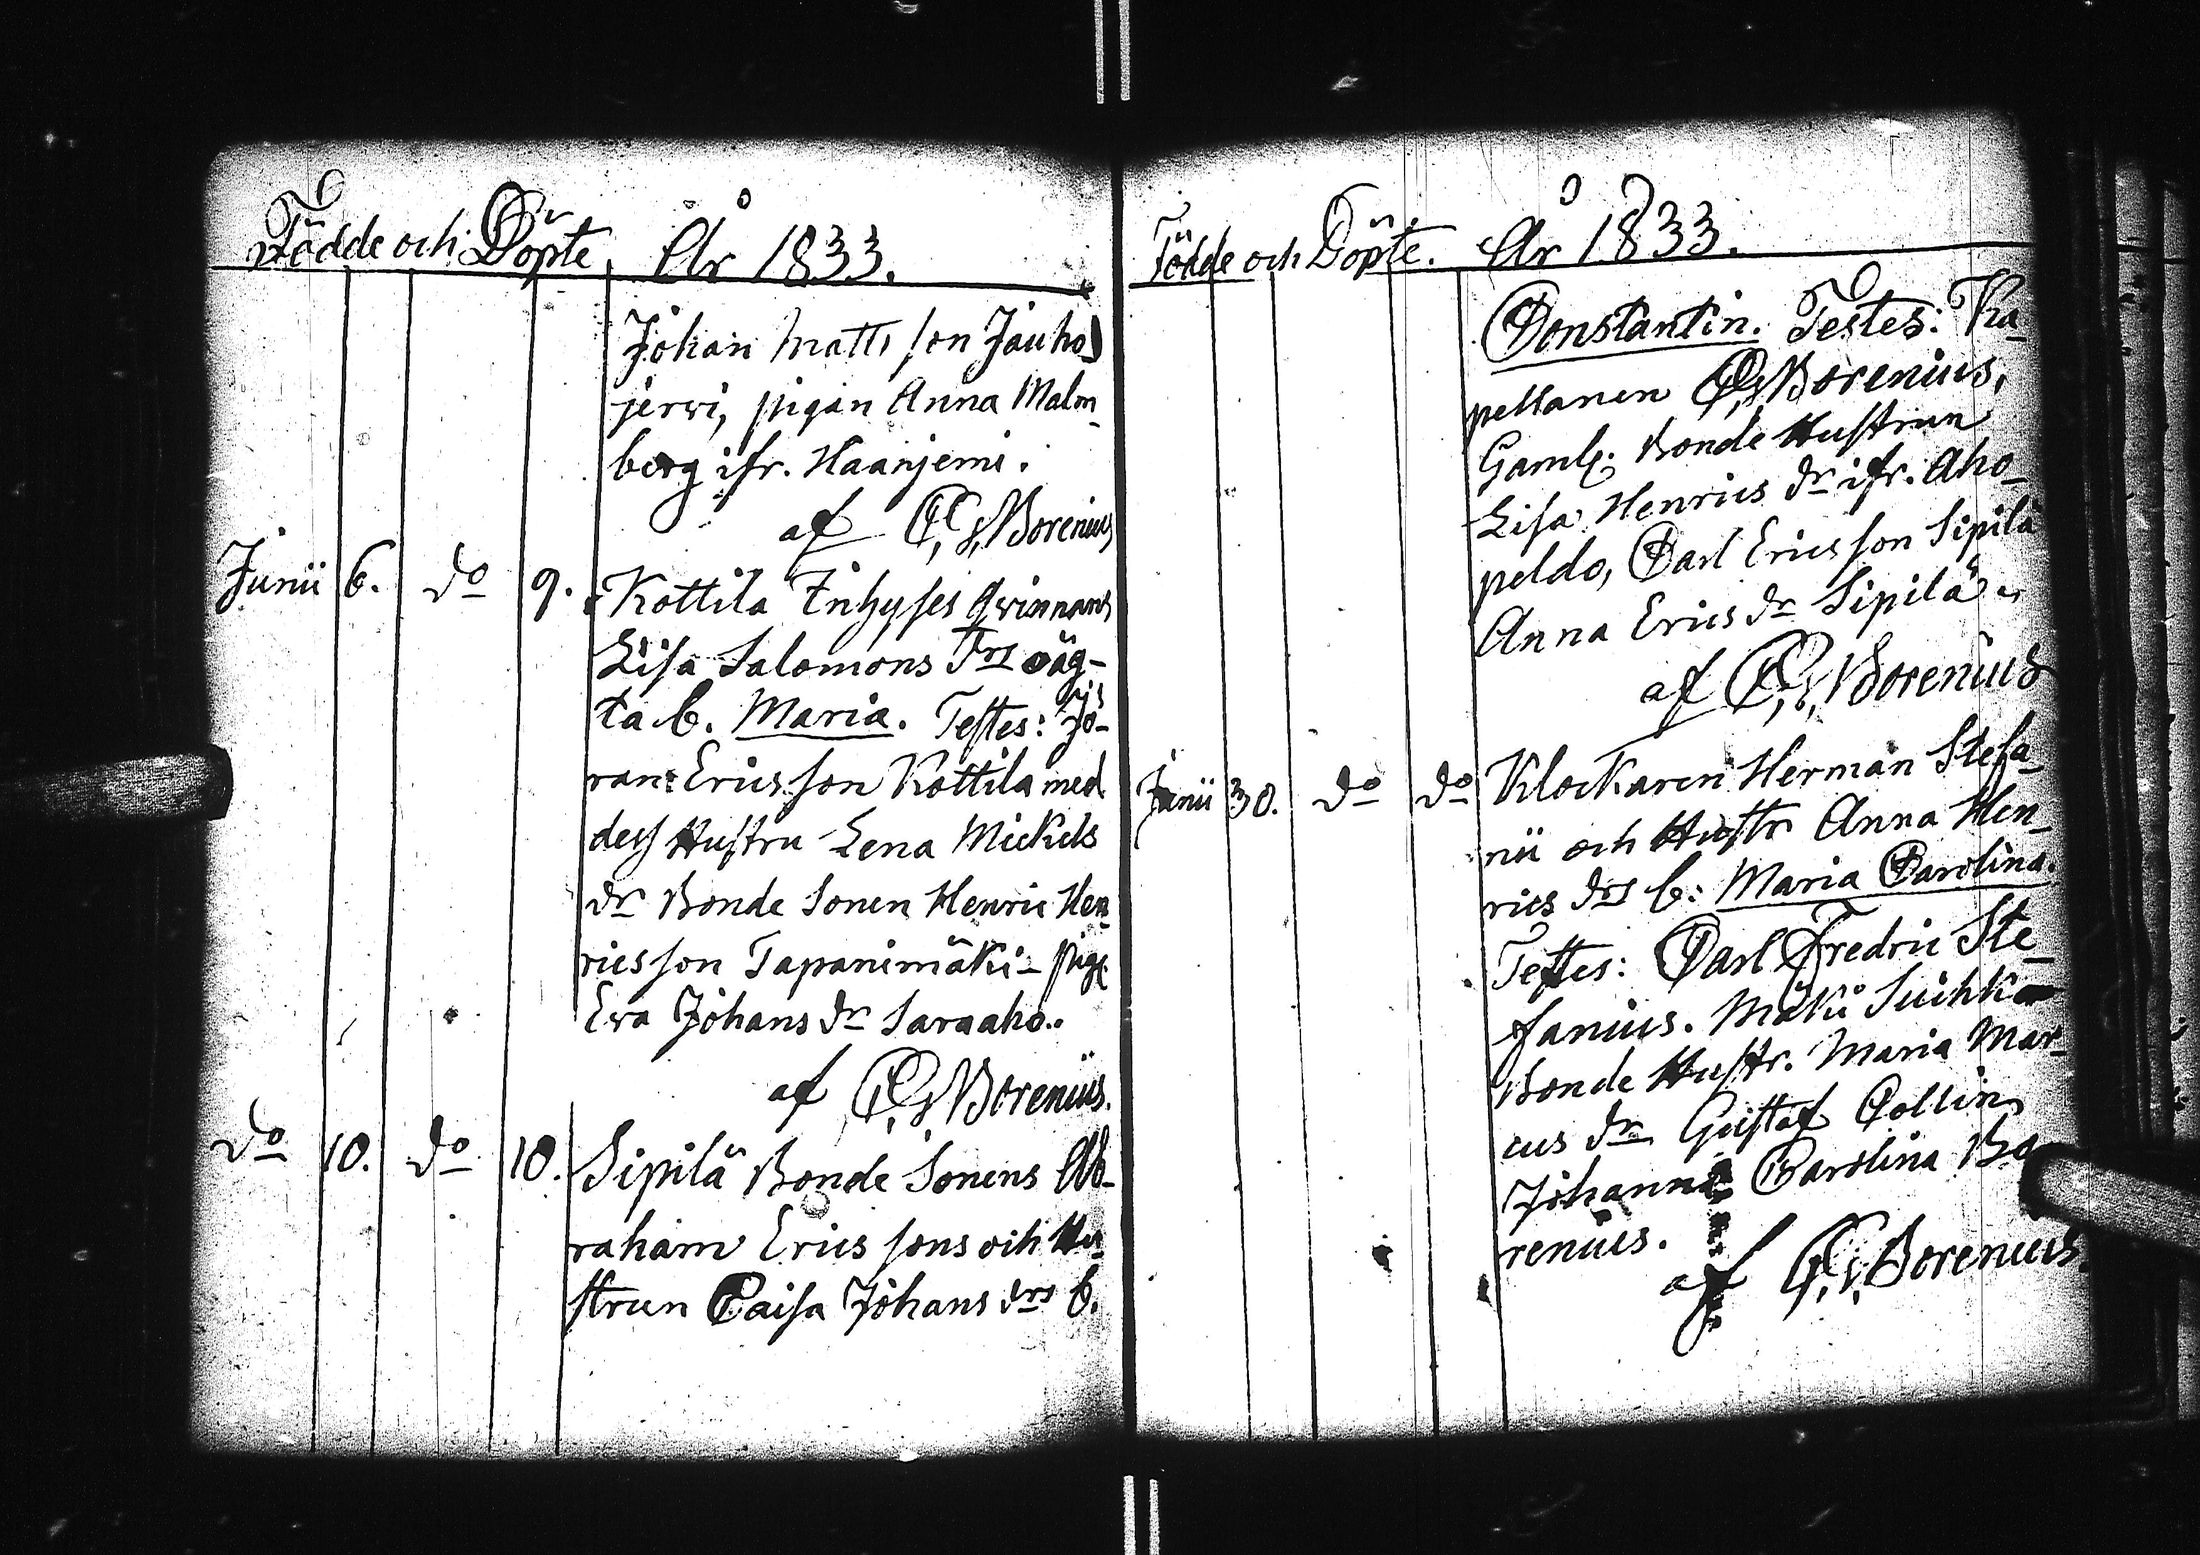 Födde och Döpte År 1833.
Johan Matts son Jauho
jerwi, pigan Anna Malm
berg ifr. Haanjemi.
af C. G. Borenius
Junii 6. do 9. Kottila Inhyses Qwinnans
Lisa Salomons drs oäg-
ta b. Maria. Testes: Jö-
ran Erics son Kottila med
dess Hustru Lena Mickels
dr Bonde Sonen Henric Hen
rics son Tapanimäki - pig.
Ewa Johans dr Saraaho.
af C. G. Borenius.
do 10. do 10. Sipilä Bonde Sonens Ab-
raham Erics sons och Hu
strun Caisa Johans drs b.
Födde och Döpte. År 1833.
Constantin. Testes: Ka
pellanen C. G. Borenius,
Gaml. Bonde Hustrun
Lisa Henrics dr ifr. Aho
peldo, Carl Erics son Sipilä
Anna Erics dr Sipilä
af C. G. Borenius
Junii 30. do do Klockaren Herman Stefa
nii och Hustr Anna Hen
rics drs b: Maria Carolina.
Testes: Carl Fredric Ste
fanius. Mäki Suihko
Bonde Hustr. Maria Mar
cus dr Gustaf Collin
Johanna Carolina Bo
renius.
af C. G. Borenius.